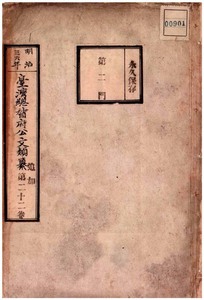 00904
永久保存
第二門
明治
臺灣總督府公文類纂
追加
第二十二卷